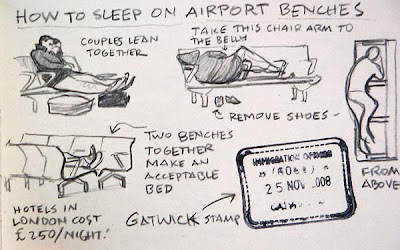 HOW TO SLEEP ON AIRPORT BENCHES
COUPLES LEAN
TOGETHER
TAKE THIS CHAIR ARM TO
THE BELLY
REMOVE SHOES -
TWO BENCHES
TOGETHER
MAKE AN
ACCEPTABLE
BED
FROM
ABOVE
HOTELS IN
LONDON COST
£250/NIGHT!
GATWICK STAMP
IMMIGRATION OFFICER
25 NOV 008